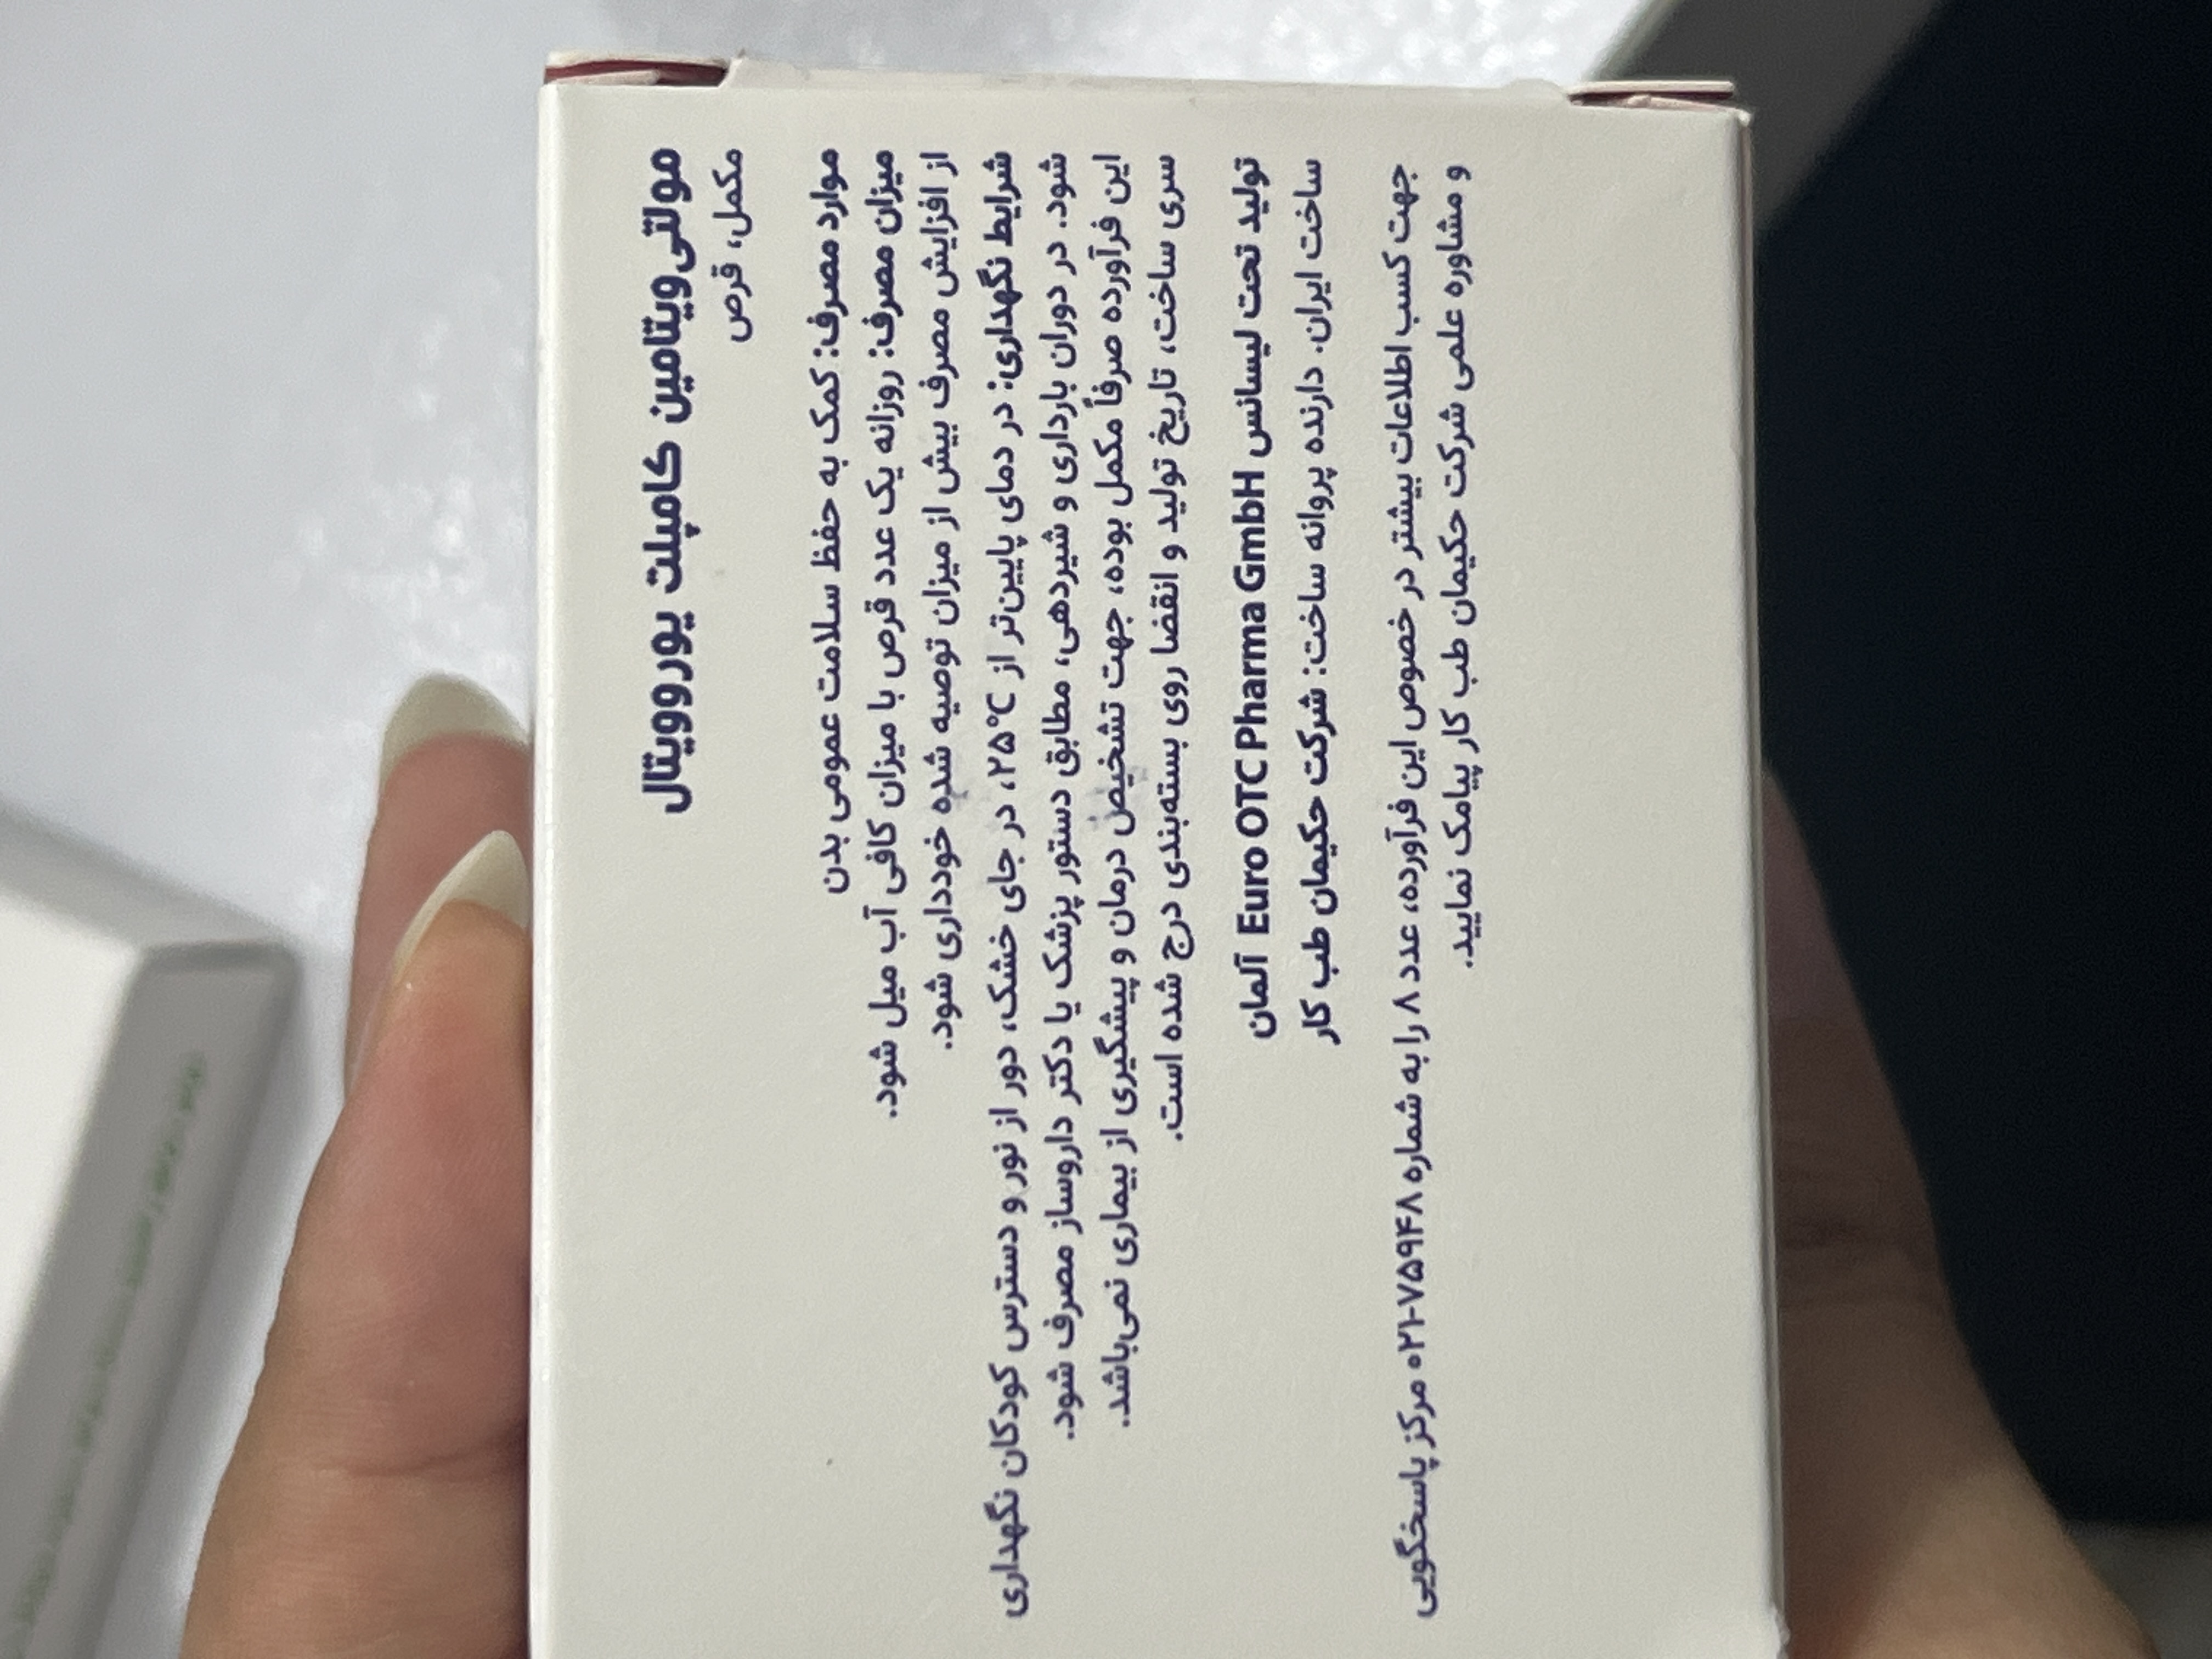 مولتی‌ویتامین کامپلت یوروویتال
مکمل، قرص
موارد مصرف: کمک به حفظ سلامت عمومی بدن
میزان مصرف: روزانه یک عدد قرص با میزان کافی آب میل شود.
از افزایش مصرف بیش از میزان توصیه شده خودداری شود.
شرایط نگهداری: در دمای پایین‌تر از ۲۵°C، در جای خشک، دور از نور و دسترس کودکان نگهداری
شود. در دوران بارداری و شیردهی، مطابق دستور پزشک یا دکتر داروساز مصرف شود.
این فرآورده صرفاً مکمل بوده، جهت تشخیص درمان و پیشگیری از بیماری نمی‌باشد.
سری ساخت، تاریخ تولید و انقضا روی بسته‌بندی درج شده است.
تولید تحت لیسانس Euro OTC Pharma GmbH آلمان
ساخت ایران. دارنده پروانه ساخت: شرکت حکیمان طب کار
جهت کسب اطلاعات بیشتر در خصوص این فرآورده، عدد ۸ را به شماره ۷۵۹۴۸-۰۲۱ مرکز پاسخگویی
و مشاوره علمی شرکت حکیمان طب کار پیامک نمایید.